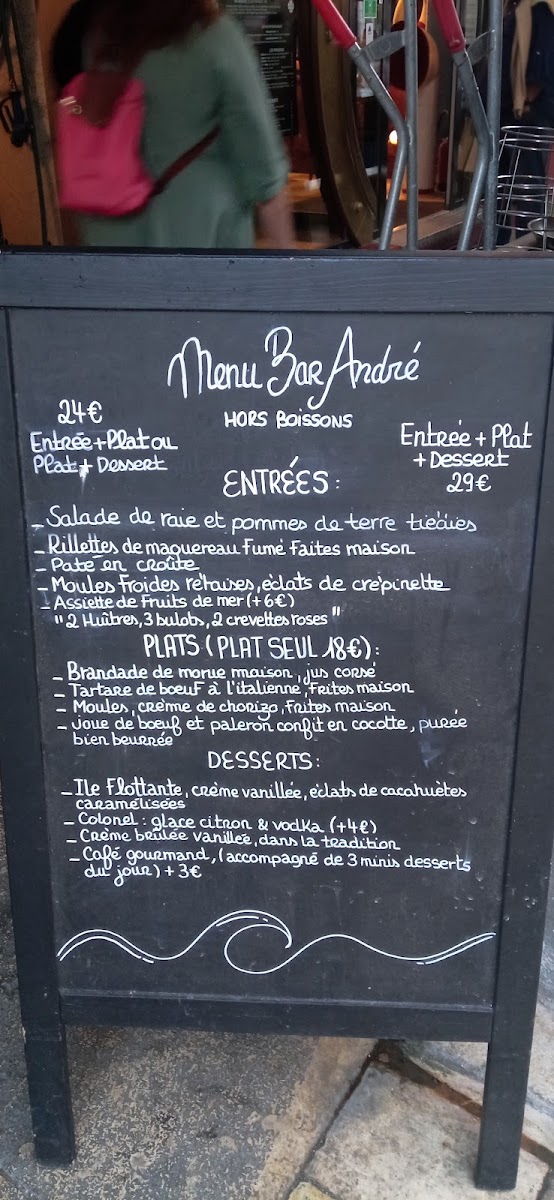 Menu Bar André
HORS BOISSONS
24€
Entrée + Plat ou
Plat + Dessert
Entrée + Plat
+ Dessert
29€
ENTRÉES :
- Salade de raie et pommes de terre tiédies
- Rillettes de maquereau fumé faites maison
- Pate en croûte
- Moules froides retaises, éclats de crépinette
- Assiette de fruits de mer (+6€)
"2 Huîtres, 3 bulots, 2 crevettes roses"
PLATS (PLAT SEUL 18€) :
- Brandade de morue maison, jus corsé
- Tartare de boeuf à l'italienne, frites maison
- Moules, crème de chorizo, frites maison
- Joue de boeuf et paleron confit en cocotte, purée
bien beurrée
DESSERTS :
- Ile Flottante, crème vanillée, éclats de cacahuètes
caramélisées
- Colonel : glace citron & vodka (+4€)
- Crème brûlée vanillée, dans la tradition
- Café gourmand, (accompagné de 3 minis desserts
du jour) + 3€